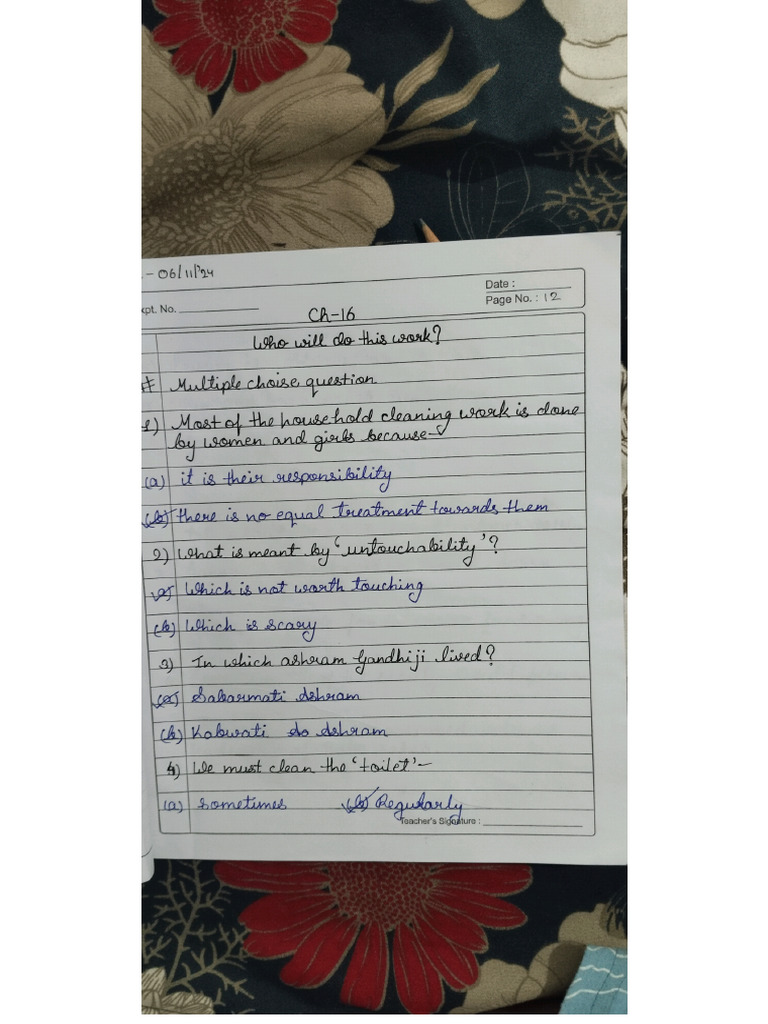 - 06/11/'24
Date :
xpt. No.
Page No. : 12
Ch-16
Who will do this work?
# Multiple choise question
1) Most of the household cleaning work is done
by women and girls because-
(a) it is their responsibility
(b) there is no equal treatment towards them
2) What is meant by 'untouchability'?
(a) Which is not worth touching
(b) Which is scary
3) In which ashram Gandhiji lived?
(a) Sabarmati Ashram
(b) Kabwati Ashram
4) We must clean the 'toilet'-
(a) Sometimes (b) Regularly
Teacher's Signature :